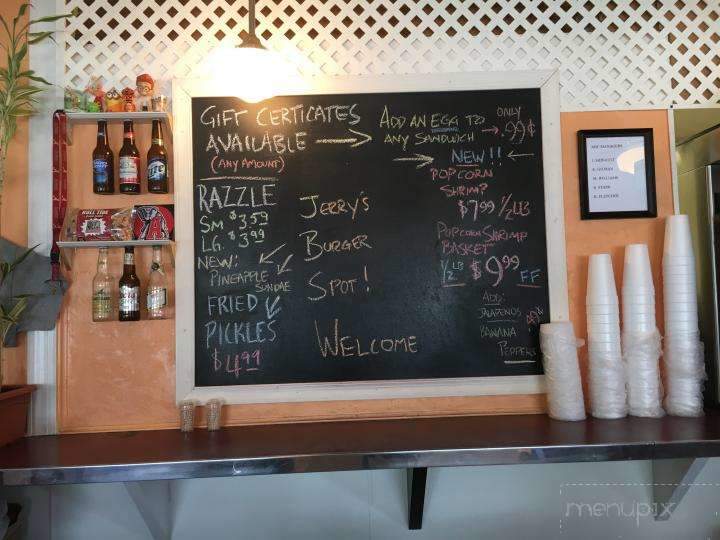 GIFT CERTICATES
AVAILABLE
(ANY AMOUNT)
ADD AN EGG TO
ANY SANDWICH
ONLY
.99¢
NEW!!
POPCORN
SHRIMP
$7.99 1/2 LB
POPCORN SHRIMP
BASKET
1/2 LB $9.99 FF
ADD:
JALAPENOS
BANANA
PEPPERS
RAZZLE
SM $3.59
LG. $3.99
NEW:
PINEAPPLE
SUNDAE
FRIED
PICKLES
$4.99
JERRY'S
BURGER
SPOT!
WELCOME
ROLL TIDE
Lite
menupix